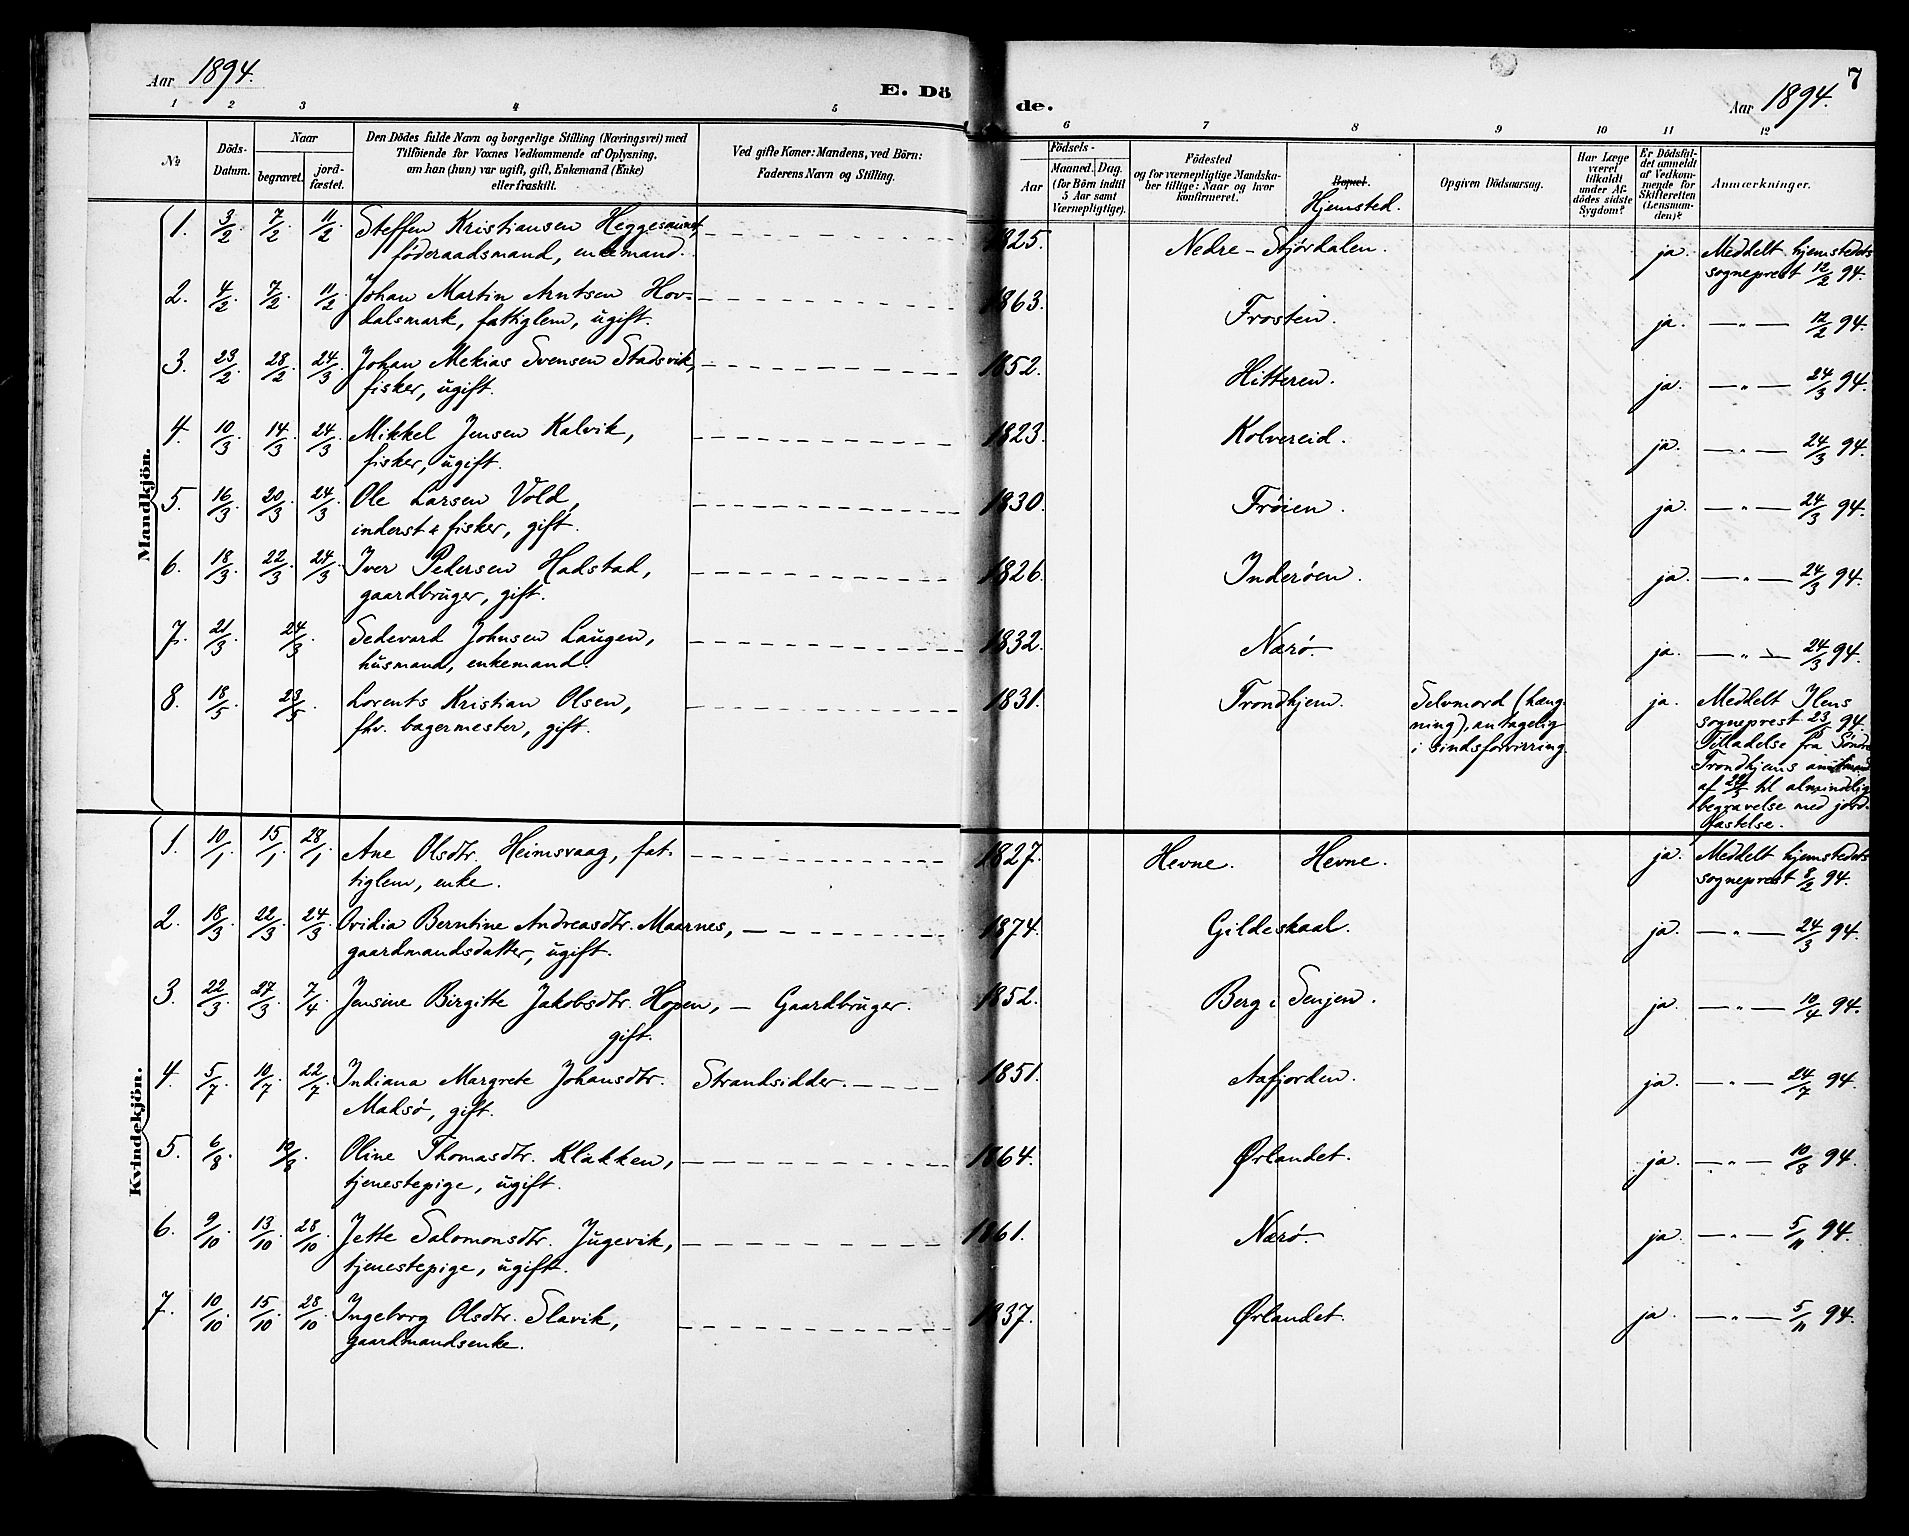 Aar 1894.
E. Dö
de.
Aar 1894.
7
1 2 3 4 5 6 7 8 9 10 11 12
№
Döds-
Datum.
Naar
begravet.
jord-
fæstet.
Den Dödes fulde Navn og borgerlige Stilling (Næringsvei) med
Tilföiende for Voxnes Vedkommende af Oplysning,
om han (hun) var ugift, gift, Enkemand (Enke)
eller fraskilt.
Ved gifte Koner: Mandens, ved Börn:
Faderens Navn og Stilling.
Födsels-
Aar
Maaned. Dag.
(for Börn indtil
5 Aar samt
Værnepligtige).
Födested
og for værnepligtige Mandska-
ber tillige: Naar og hvor
konfirmeret.
Bopæl.
Hjemsted.
Opgiven Dödsaarsag.
Har Læge
været
tilkaldt
under Af-
dödes sidste
Sygdom?
Er Dödsfal-
det anmeldt
af Vedkom-
mende for
Skifteretten
(Lensman-
den)?
Anmærkninger.
Mandkjön.
1. 3/2 7/2 11/2 Steffen Kristiansen Heggesaunet 1825. Nedre-Stjørdalen. ja. Meddelt hjemstedets
föderaadsmand, enkemand. sogneprest 12/2 94.
2. 4/2 7/2 11/2 Johan Martin Arntsen Hov- 1863. Frosten. ja. —„— 12/2 94.
dalsmark, fattiglem, ugift.
3. 23/2 28/2 24/3 Johan Mekias Svensen Stadsvik, 1852. Hitteren. ja. —„— 24/3 94.
fisker, ugift.
4. 10/3 14/3 24/3 Mikkel Jensen Kalvik, 1823. Kolvereid. ja. —„— 24/3 94.
fisker, ugift.
5. 16/3 20/3 24/3 Ole Larsen Vold, 1830. Frøien. ja. —„— 24/3 94.
inderst & fisker, gift.
6. 18/3 22/3 24/3 Iver Pedersen Hadstad, 1826. Inderøen. ja. —„— 24/3 94.
gaardbruger, gift.
7. 21/3 24/3 Sedevard Johnsen Laugen, 1832. Nærø. ja. —„— 24/3 94.
husmand, enkemand.
8. 18/5 23/5 Lorents Kristian Olsen, 1831. Trondhjem. Selvmord (hæng- ja. Meddelt Ilens
fhv. bagermester, gift. ning), antagelig sogneprest 23/5 94.
i sindsforvirring. Tilladelse fra Söndre
Trondhjems amtmand
af 22/5 til almindelig
begravelse med jord-
fæstelse.
Kvindekjön.
1. 10/1 15/1 28/1 Ane Olsdtr. Heimsvaag, fat- 1827. Hevne. Hevne. ja. Meddelt hjemstedets
tiglem, enke. sogneprest 8/2 94.
2. 18/3 22/3 24/3 Ovidia Berntine Andreasdtr. Maarnes, 1874. Gildeskaal. ja. —„— 24/3 94.
gaardmandsdatter, ugift.
3. 22/3 27/3 7/4 Jensine Birgitte Jakobsdtr. Hopen, — Gaardbruger. 1852. Berg i Senjen. ja. —„— 10/4 94.
gift.
4. 5/7 10/7 22/7 Indiana Margrete Johansdtr. Strandsidder. 1851. Aafjorden. ja. —„— 24/7 94.
Maksø, gift.
5. 6/8 10/8 Oline Thomasdtr. Klakken, 1864. Ørlandet. ja. —„— 10/8 94.
tjenestepige, ugift.
6. 9/10 13/10 28/10 Jette Salomonsdtr. Jugevik, 1861. Nærø. ja. —„— 5/11 94.
tjenestepige, ugift.
7. 10/10 15/10 28/10 Ingeborg Olsdtr. Slavik, 1837. Ørlandet. ja. —„— 5/11 94.
gaardmandsenke.